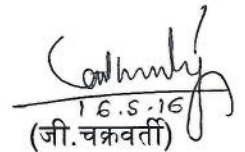 16.5.16
(जी. चक्रवर्ती)